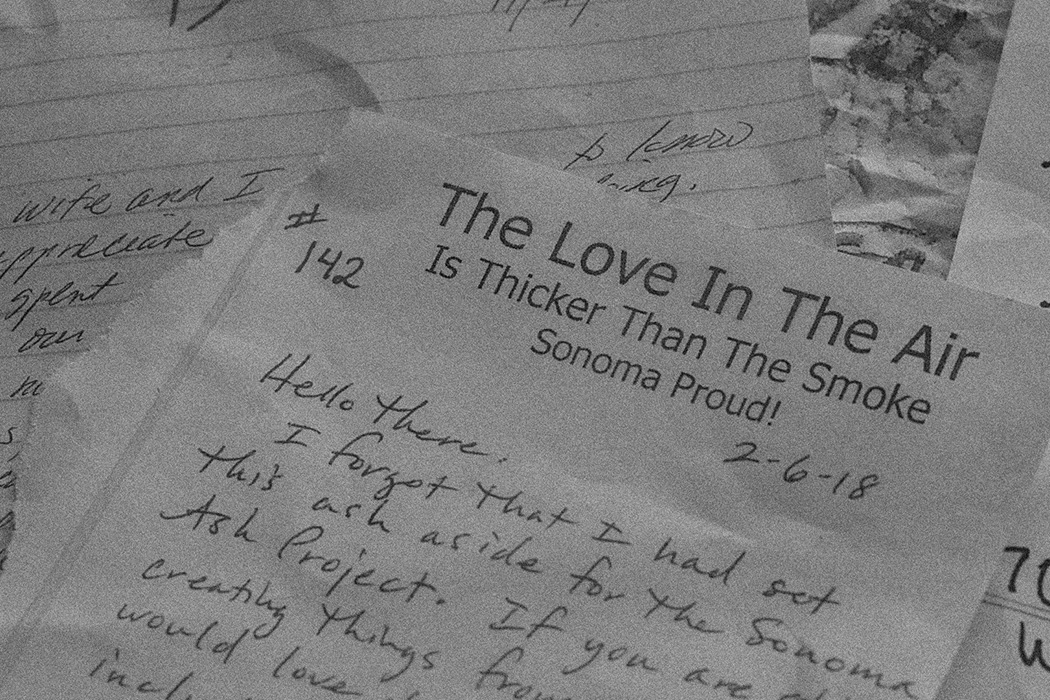 to know
wife and I
appreciate
spent
our
#
142
The Love In The Air
Is Thicker Than The Smoke
Sonoma Proud!
2-6-18
Hello there.
I forgot that I had set
this ash aside for the Sonoma
Ash Project. If you are
creating things from
would love
70